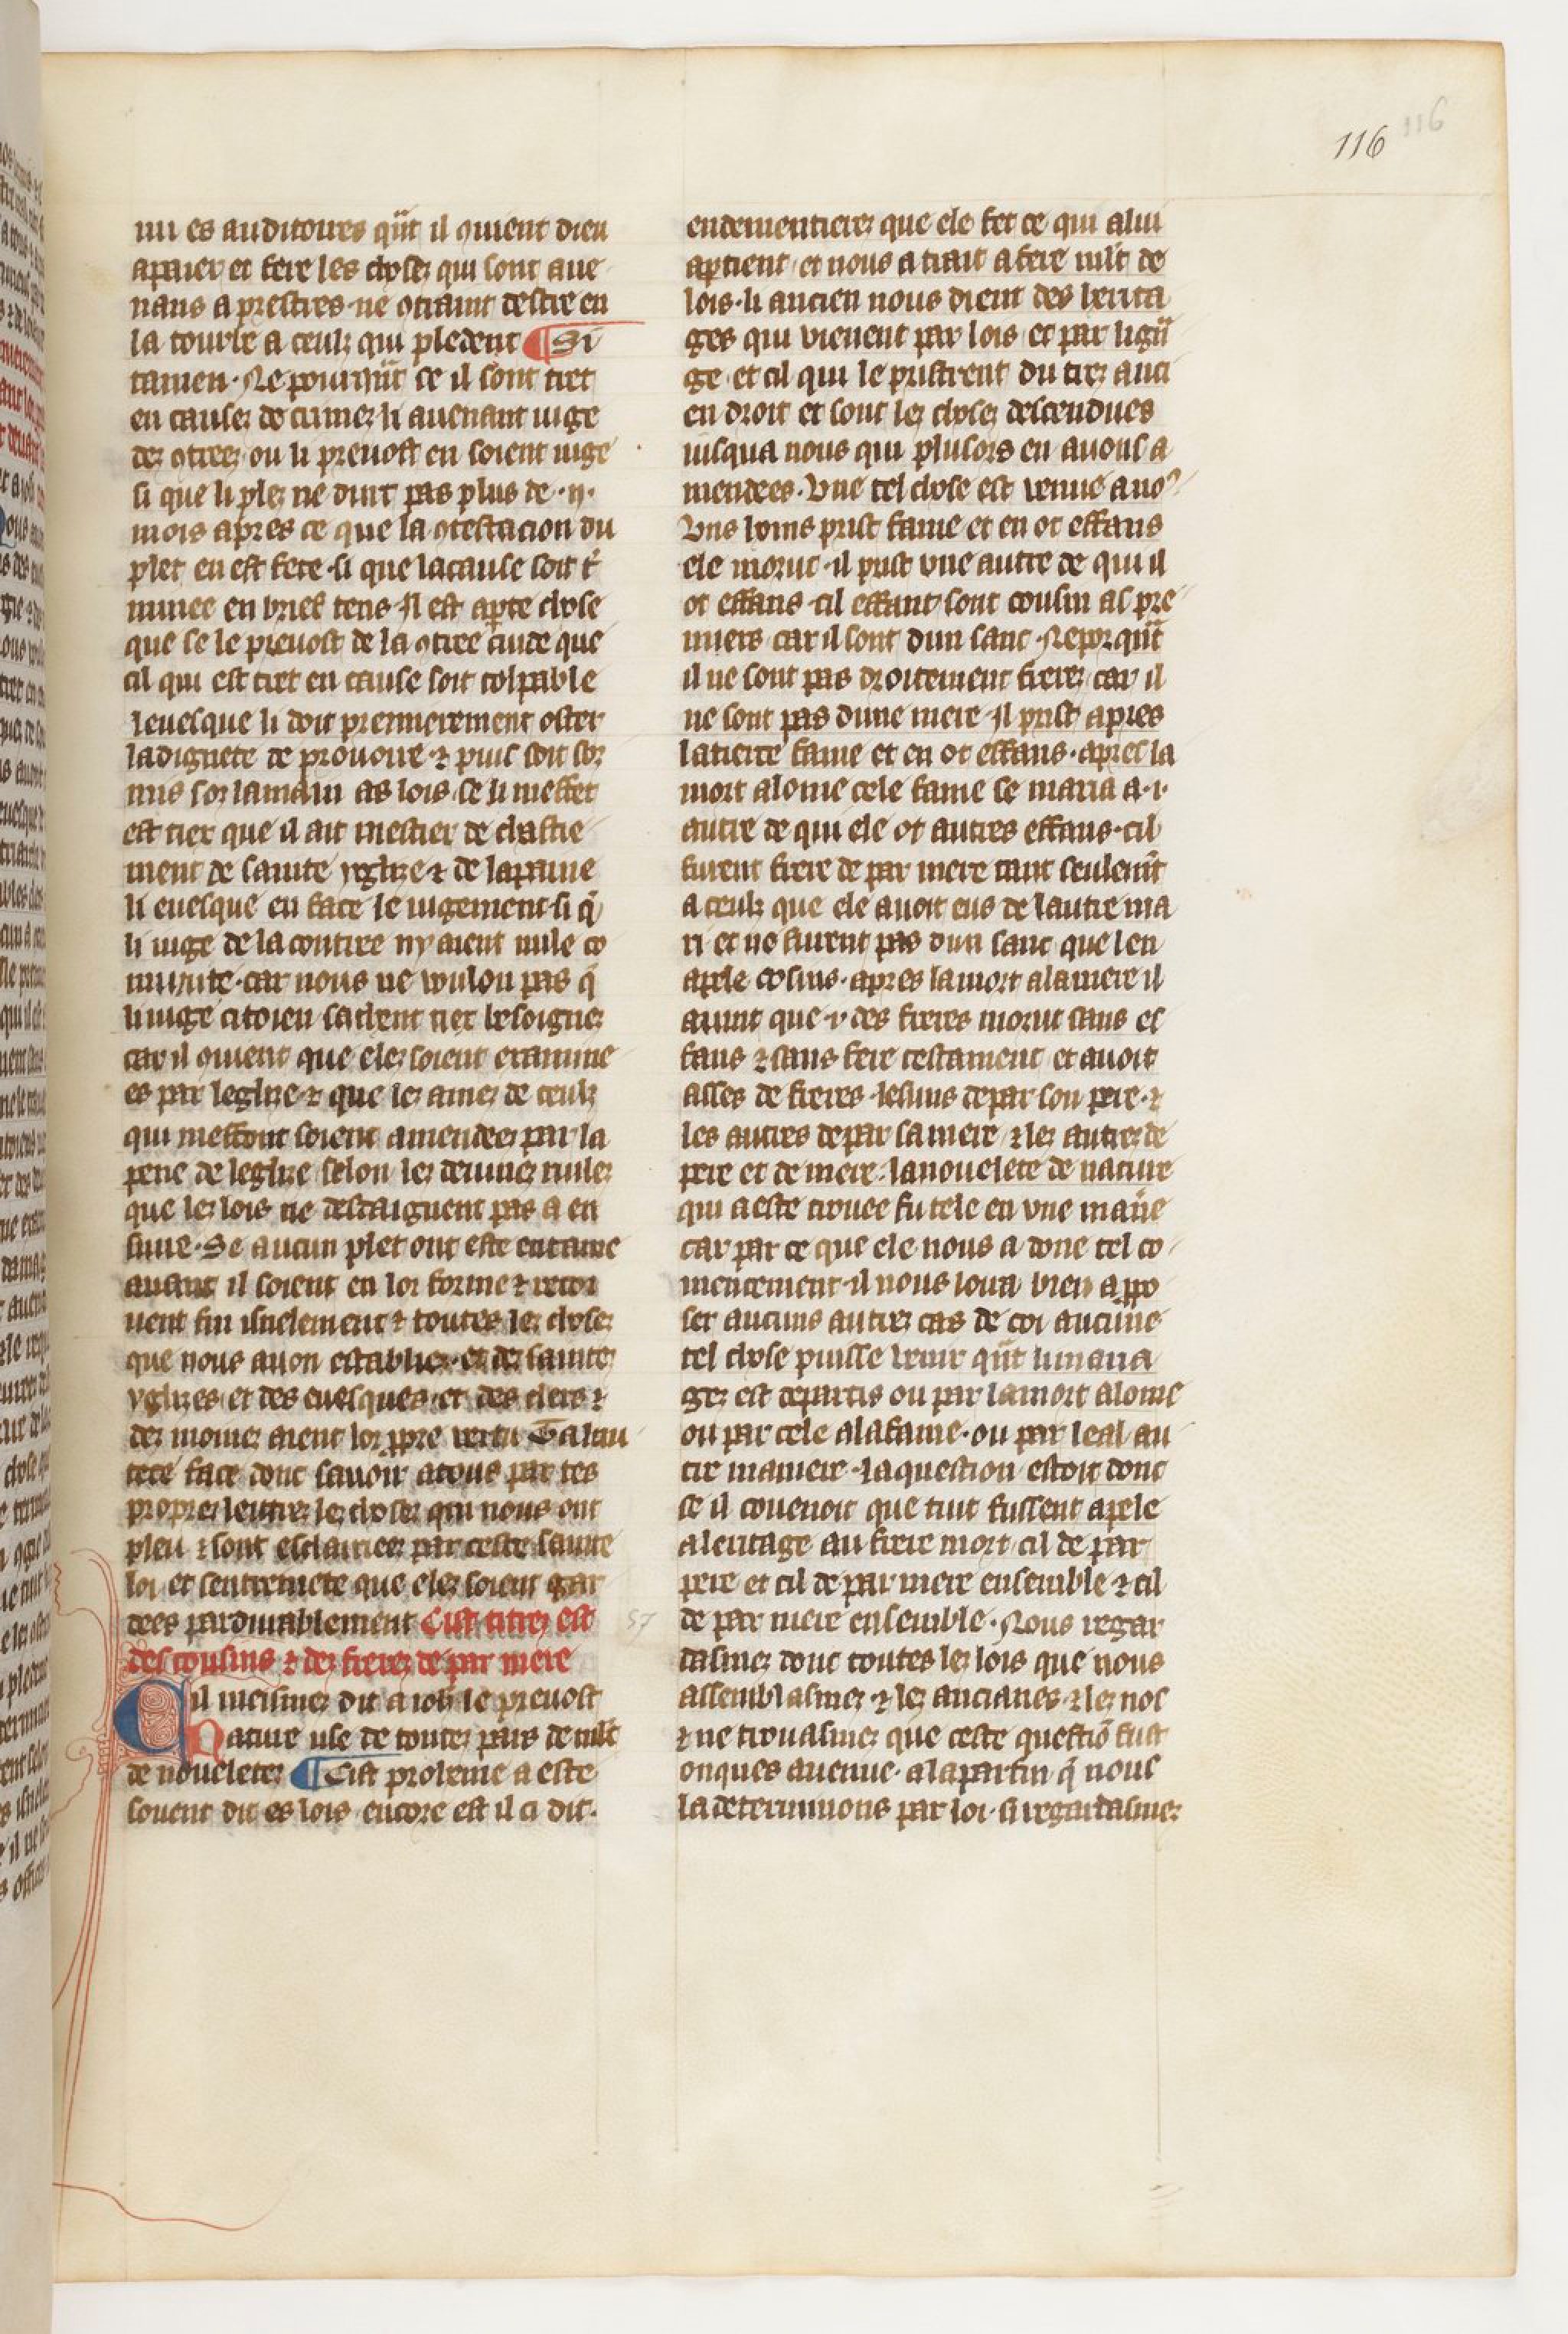 116 116
nu es auditoires q̃nt il ꝯuient dieu
apaier et fere les choses qui sont aue
nans a prestres ne otraint destre en
la tourbe a ceulz qui pledent ¶ Si
tamen. Ne pourq̃nt se il sont tret
en causes de crimes li auenant iuge
des ꝯtrees ou li preuost en soient iuge
si que li ples ne durt pas plus de .ij.
mois apres ce que la ꝯtestacion du
plet en est fete si que lacause soit t͛
minee en brief tens Il est aꝑte chose
que se le preuost de la ꝯtree cuide que
cil qui est tret en cause soit colpable
leuesque li doit premierement oster
ladignete de prouoire ⁊ puis soit sor
mis sor lamain as lois se li meffet
est tiex que il ait mestier de chastie
ment de sainte yglize ⁊ de lapaine
li euesque en face le iugement si q̃
li iuge de la contree ny aient nule co
munite car nous ne voulon pas q̃
li iuge citoien sachent tiex besoignes
car il ꝯuient que eles soient examine
es par leglize ⁊ que les ames de ceulz
qui meffont soient amendees par la
pene de leglize selon les deuines riules
que les lois ne desdaignent pas a en
suiure. Se aucun plet ont este entame
auant il soient en lor forme ⁊ recoi
uent fin isnelement ⁊ toutes les choses
que nous auon establies et des saintes
yglizes et des euesques et des clers ⁊
des moines aient lor ꝓpre vertu Ta hau
tece face donc sauoir a tous par tes
propres lettres les choses qui nous ont
pleu ⁊ sont esclairiees par ceste sainte
loi et sentremete que eles soient gar
dees pardurablement Cist titres est
des cousins ⁊ des freres de par mere
Cil meismes dit a ioh̃ le preuost
Nature use de toutes pars de mlt̃
de noueletes ¶ Cist proheme a este
souent dit es lois encore est il ci dit.
endementieres que ele fet ce qui a lui
aꝑtient et nous a trait a fere mlt̃ de
lois. li ancien nous dient des herita
ges qui vienent par lois et par lign̄
ge et cil qui le pristrent du tiez anci
en droit et sont les choses descendues
iusqua nous qui plusors en auons a
mendees. Vne tel chose est venue a noꝰ
Uns homs prist fame et en ot effans
ele morut il prist vne autre de qui il
ot effans cil effant sont cousin as pre
miers car il sont dun sanc Neporq̃nt
il ne sont pas droitement freres car il
ne sont pas dune mere Il prist apres
latierce fame et en ot effans. apres la
mort alome cele fame se maria a .i.
autre de qui ele ot autres effans cil
furent frere de par mere tant seulem̃t
a ceulz que ele auoit eus de lautre ma
ri et ne furent pas dun sanc que len
apele cosins. apres lamort alamere il
auint que .v. des freres morut sans ef
fans ⁊ sans fere testament et auoit
asses de freres lesuns depar son pere ⁊
les autres depar samere ⁊ les autres de
pere et de mere. lanouelete de nature
qui aeste trouee fu tele en vne mañie
car par ce que ele nous a done tel co
mencement il nous loua bien a ꝓpo
ser aucuns autres cas de coi aucune
tel chose puisse venir q̃nt li maria
ges est departis ou par lamort alome
ou par cele alafame ou par leal au
tre maniere laquestion estoit donc
se il couenoit que tuit fussent apele
aleritage au frere mort cil de par
pere et cil de par mere ensemble ⁊ cil
57
de par mere ensemble. Nous regar
dasmes donc toutes les lois que nous
assemblasmes ⁊ les ancianes ⁊ les nos
⁊ ne trouasmes que ceste questiõ fust
onques auenue. alaparfin q̃ nous
la determinons par loi. si regardasmes